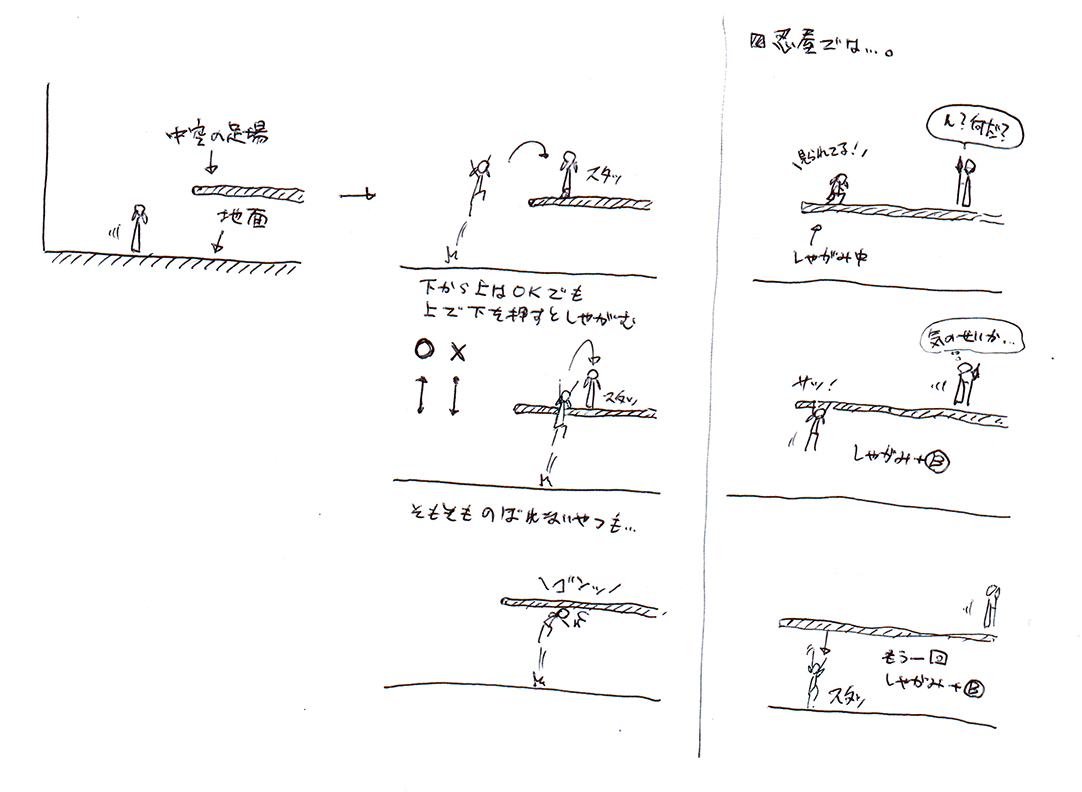 中空の足場
地面
スタッ
下から上はOKでも
上で下を押すとしゃがむ
○ ×
スタッ
そもそものぼれないやつも…
\ゴンッ/
忍屋では…。
ん?何だ?
\見られてる!/
しゃがみ中
気のせいか…
サッ!
しゃがみ+Ⓑ
もう一回
しゃがみ+Ⓑ
スタッ